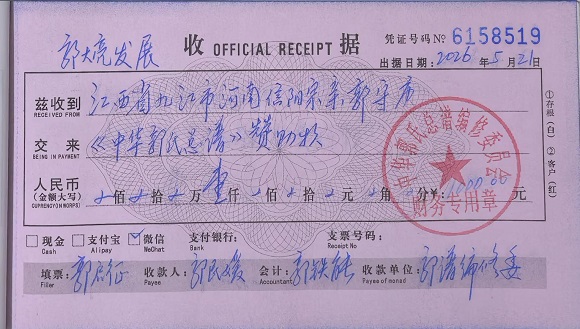 郭大亮发展
收 OFFICIAL RECEIPT 据
凭证号码 № 6158519
出据日期: 2026年5月21
兹收到 江西省九江市河南信阳宗亲郭守质
RECEIVED FROM
交来 《中华郭氏总谱》赞助款
BEING IN PAYMENT
人民币 佰 拾 万 壹仟 佰 拾 元 角 分 ¥: 1000.00
(金额大写)
现金 支付宝 微信 支付银行: 支票号码:
Cash Alipay WeChat Bank Receipt No
填票: 收款人: 会计: 郭铁能 收款单位: 郭谱编修委
Filer Payee Accountant Payee of monad
中华郭氏总谱编修委员会
财务专用章
①存根(白) ②客户(红)